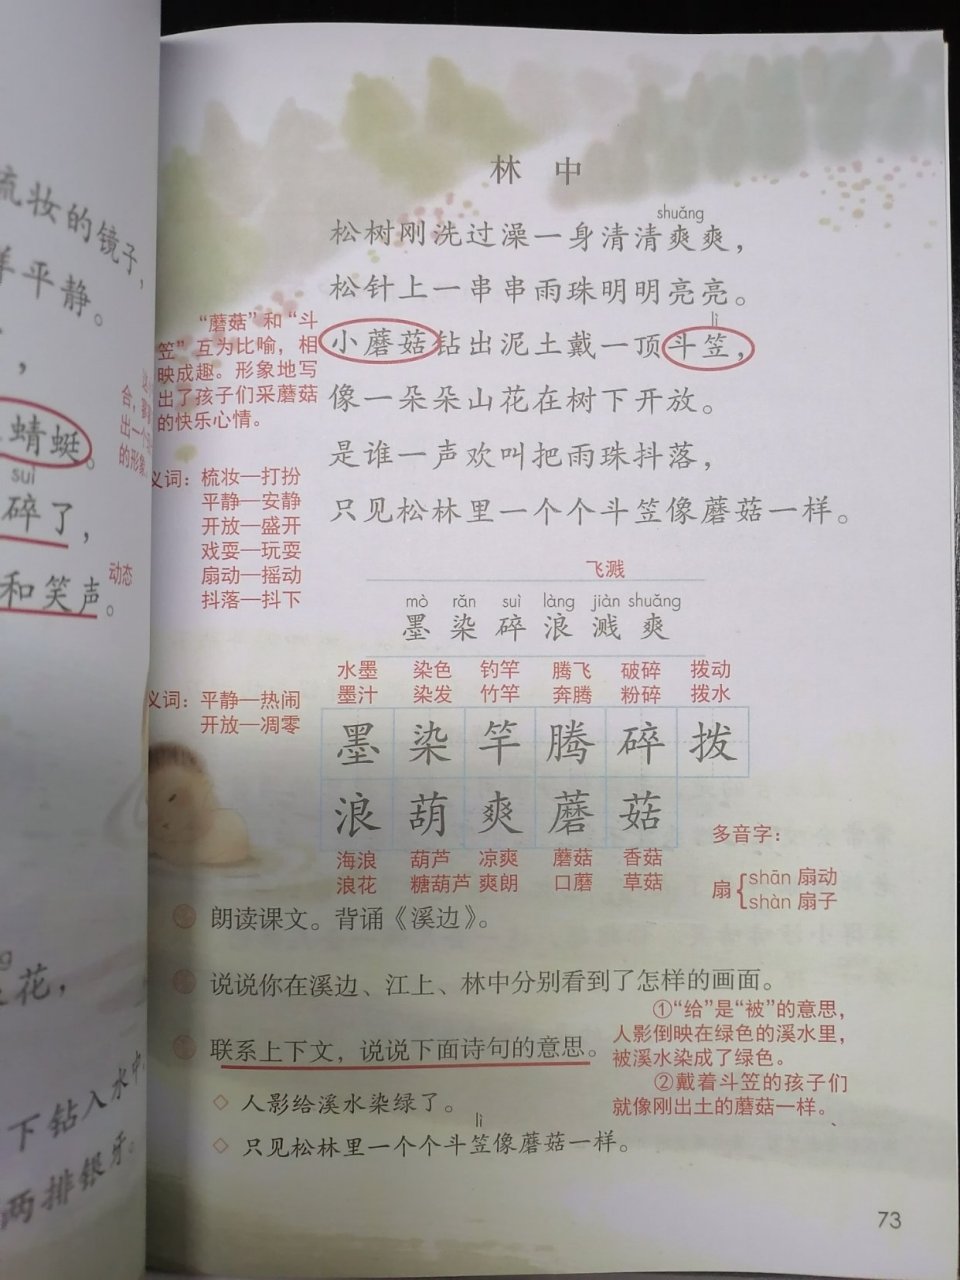 梳妆的镜子，
平静。
，
蜻蜓。
suì
碎了，
和笑声。
动态
花，
下钻入水中，
两排银牙。
林 中
shuǎng
松树刚洗过澡一身清清爽爽，
松针上一串串雨珠明明亮亮。
lì
小蘑菇钻出泥土戴一顶斗笠，
像一朵朵山花在树下开放。
是谁一声欢叫把雨珠抖落，
只见松林里一个个斗笠像蘑菇一样。
“蘑菇”和“斗
笠”互为比喻，相
映成趣。形象地写
出了孩子们采蘑菇
的快乐心情。
义词：梳妆—打扮
平静—安静
开放—盛开
戏耍—玩耍
扇动—摇动
抖落—抖下
义词：平静—热闹
开放—凋零
飞溅
mò rǎn suì làng jiàn shuǎng
墨 染 碎 浪 溅 爽
水墨 染色 钓竿 腾飞 破碎 拨动
墨汁 染发 竹竿 奔腾 粉碎 拨水
墨 染 竿 腾 碎 拨
浪 葫 爽 蘑 菇
海浪 葫芦 凉爽 蘑菇 香菇
浪花 糖葫芦 爽朗 口蘑 草菇
多音字：
扇
shān 扇动
shàn 扇子
朗读课文。背诵《溪边》。
说说你在溪边、江上、林中分别看到了怎样的画面。
联系上下文，说说下面诗句的意思。
①“给”是“被”的意思，
人影倒映在绿色的溪水里，
被溪水染成了绿色。
②戴着斗笠的孩子们
就像刚出土的蘑菇一样。
◇ 人影给溪水染绿了。
lì
◇ 只见松林里一个个斗笠像蘑菇一样。
73